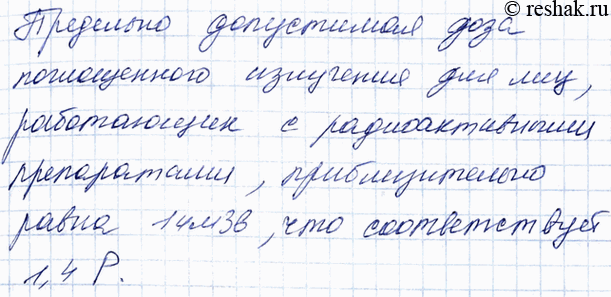 © reshak.ru
Предельно допустимая доза
поглощенного излучения для лиц,
работающих с радиоактивными
препаратами, приблизительно
равна 14мЗв, что соответствует
1,4 Р.